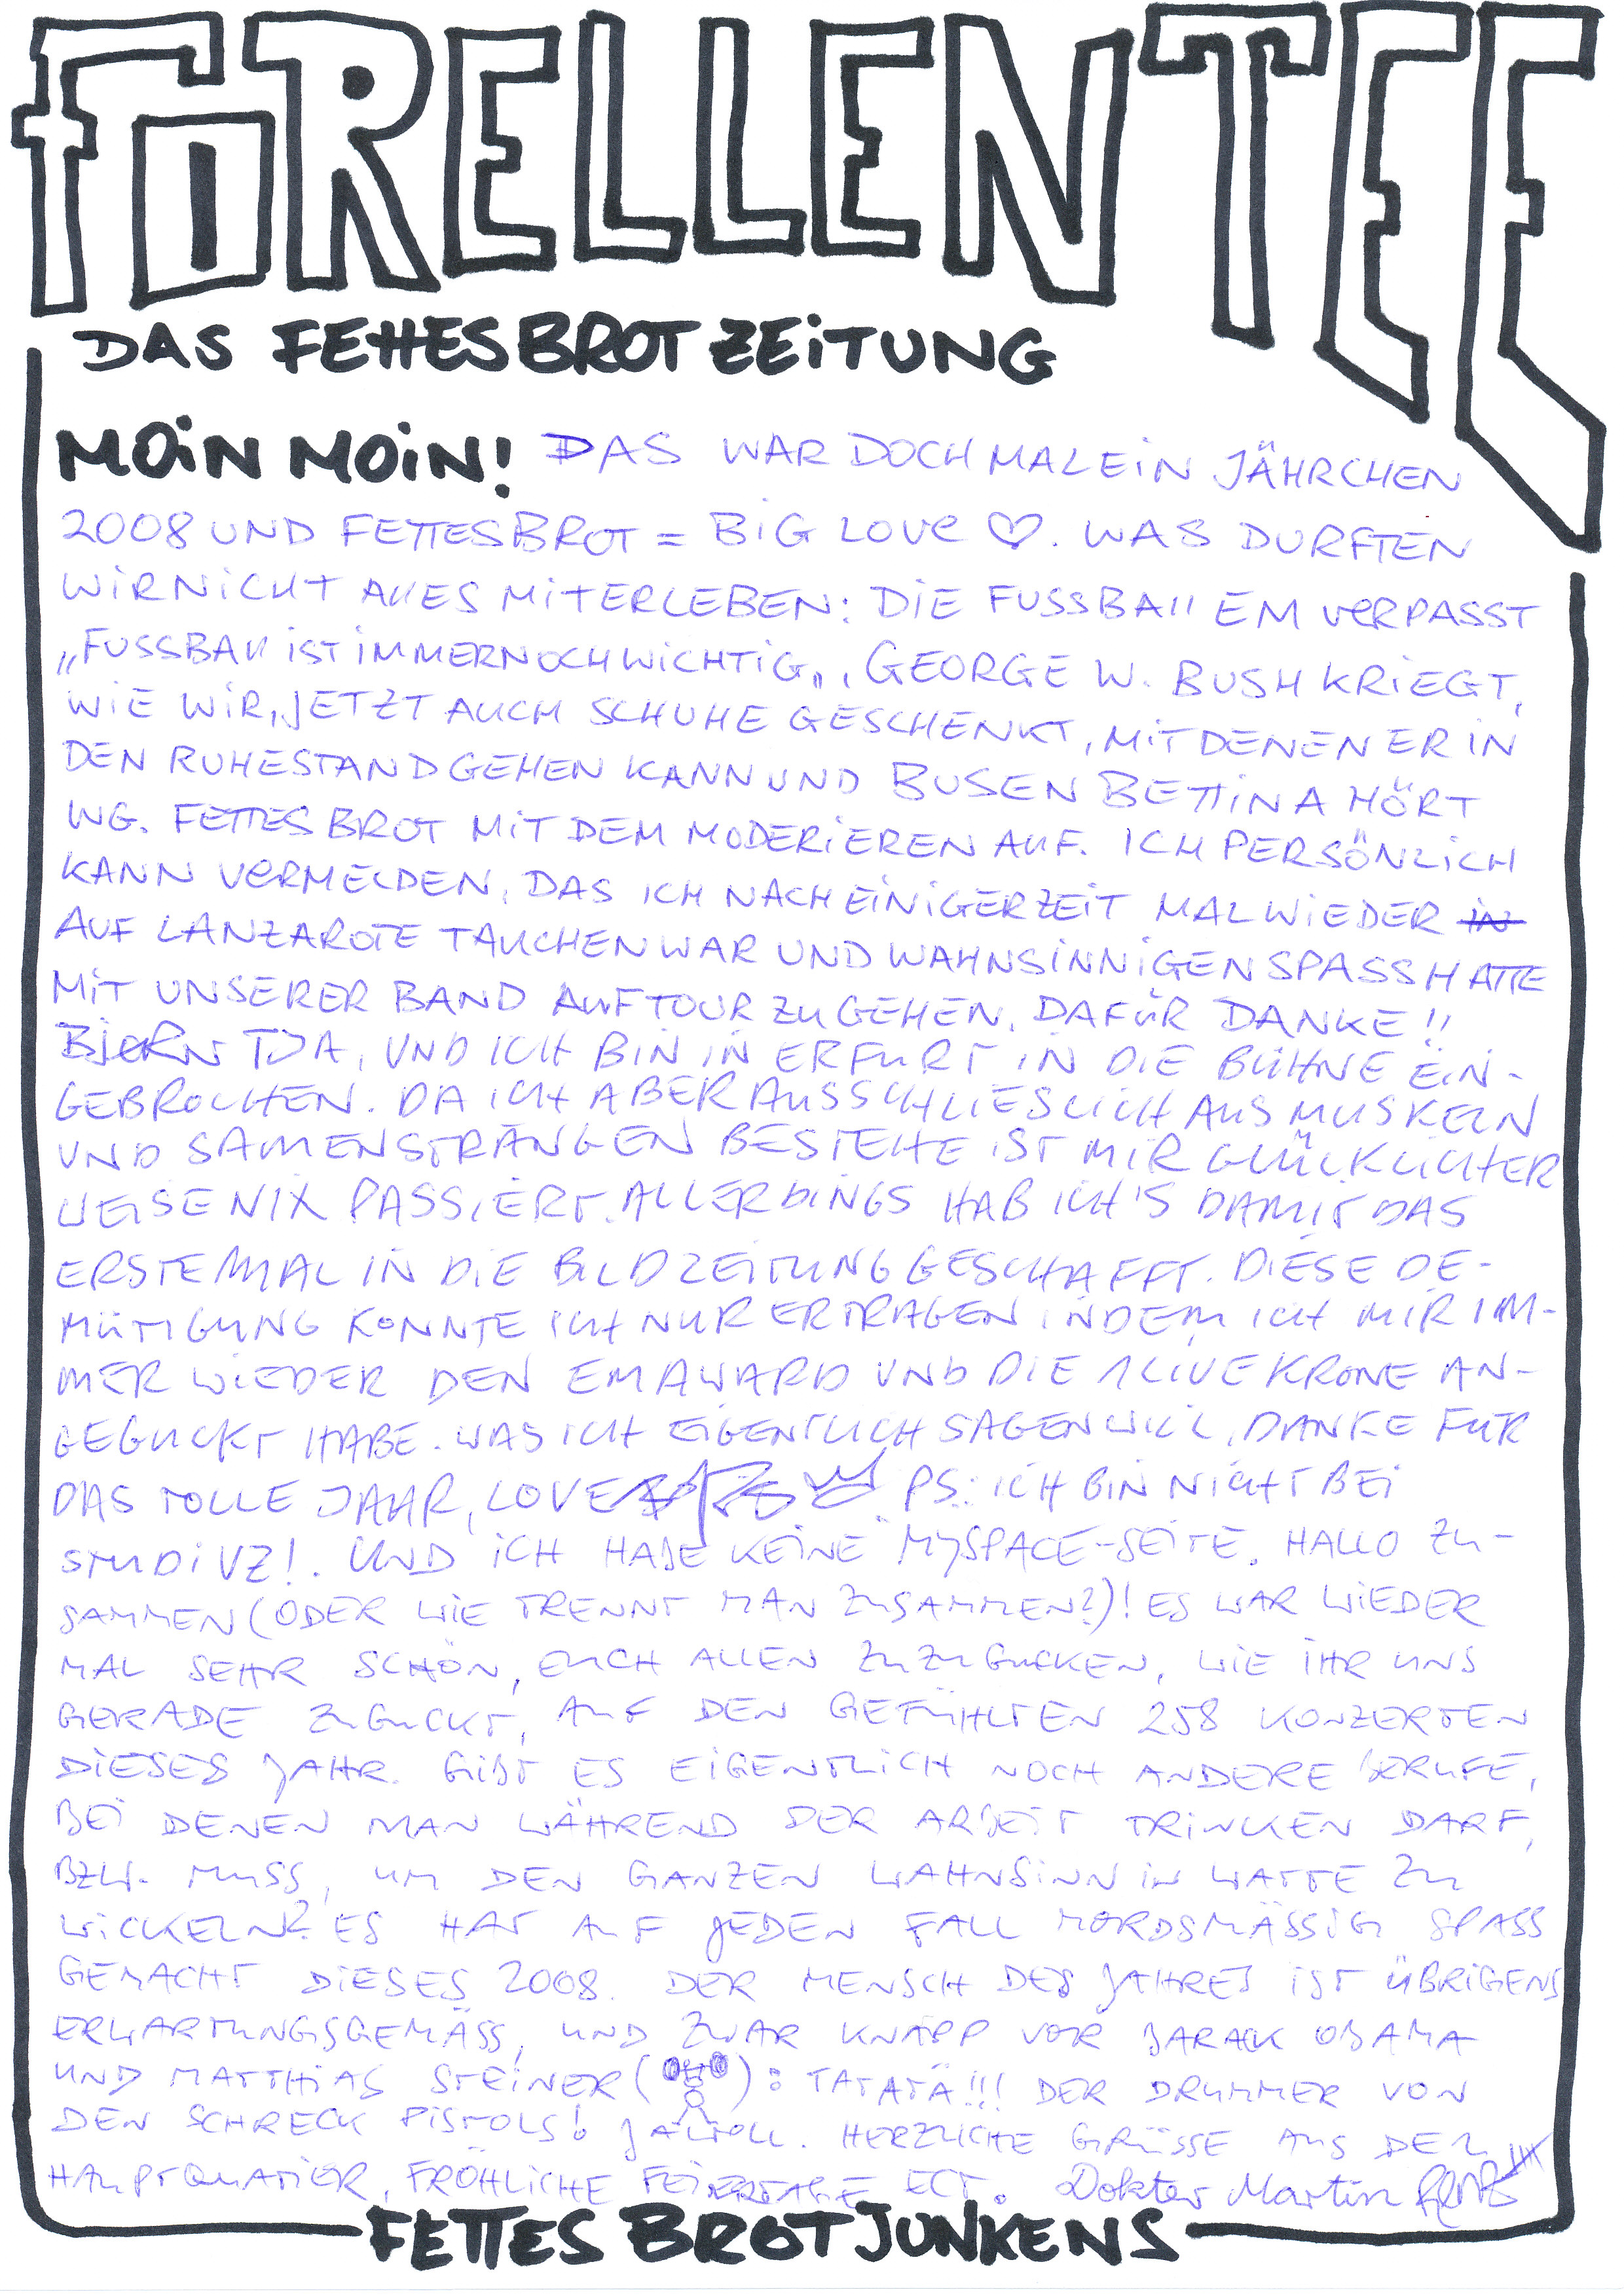 FORELLENTEE
DAS FETTES BROT ZEITUNG
MOIN MOIN! DAS WAR DOCH MAL EIN JÄHRCHEN
2008 UND FETTES BROT = BIG LOVE ♡. WAS DURFTEN
WIR NICHT ALLES MITERLEBEN: DIE FUSSBALL EM VERPASST
„FUSSBALL IST IMMER NOCH WICHTIG„, GEORGE W. BUSH KRIEGT,
WIE WIR, JETZT AUCH SCHUHE GESCHENKT, MIT DENEN ER IN
DEN RUHESTAND GEHEN KANN UND BUSEN BETTINA HÖRT
WG. FETTES BROT MIT DEM MODERIEREN AUF. ICH PERSÖNLICH
KANN VERMELDEN, DAS ICH NACH EINIGER ZEIT MAL WIEDER IN
AUF LANZAROTE TAUCHEN WAR UND WAHNSINNIGEN SPASS HATTE
MIT UNSERER BAND AUF TOUR ZU GEHEN. DAFÜR DANKE!!
BJÖRN TJA, UND ICH BIN IN ERFURT IN DIE BÜHNE EIN-
GEBROCHEN. DA ICH ABER AUSSCHLIESLICH AUS MUSKELN
UND SAMENSTRÄNGEN BESTEHE IST MIR GLÜCKLICHER
WEISE NIX PASSIERT. ALLERDINGS HAB ICH'S DAMIT DAS
ERSTE MAL IN DIE BILDZEITUNG GESCHAFFT. DIESE DE-
MÜTIGUNG KONNTE ICH NUR ERTRAGEN INDEM ICH MIR IM-
MER WIEDER DEN EMAWARD UND DIE 1LIVE KRONE AN-
GEGUCKT HABE. WAS ICH EIGENTLICH SAGEN WILL, DANKE FÜR
DAS TOLLE JAHR, LOVE PS: ICH BIN NICHT BEI
STUDIVZ!. UND ICH HABE KEINE MYSPACE-SEITE. HALLO ZU-
SAMMEN (ODER WIE TRENNT MAN ZUSAMMEN?)! ES WAR WIEDER
MAL SEHR SCHÖN, EUCH ALLEN ZUZUGUCKEN, WIE IHR UNS
GERADE ZUGUCKT, AUF DEN GEFÜHLTEN 258 KONZERTEN
DIESES JAHR. GIBT ES EIGENTLICH NOCH ANDERE BERUFE,
BEI DENEN MAN WÄHREND DER ARBEIT TRINKEN DARF,
BZW. MUSS, UM DEN GANZEN WAHNSINN IN WATTE ZU
WICKELN? ES HAT AUF JEDEN FALL MORDSMÄSSIG SPASS
GEMACHT DIESES 2008. DER MENSCH DES JAHRES IST ÜBRIGENS
ERWARTUNGSGEMÄSS, UND ZWAR KNAPP VOR BARACK OBAMA
UND MATTHIAS STEINER ( ): TATATÄ!!! DER DRUMMER VON
DEN SCHRECK PISTOLS! JAWOLL. HERZLICHE GRÜSSE AUS DEM
HAUPTQUATIER, FRÖHLICHE FEIERTAGE ECT. Dokter Martin
FETTES BROT JUNKENS